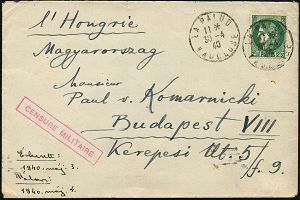 l'Hongrie
Magyarország
LA PALUD
11 H
30 - 4
40
VAUCLUSE
Monsieur
Paul v. Komarnicki
Budapest VIII
Kerepesi Ut. 5/
f. 9.
CENSURE MILITAIRE
1940. máj. 3.
1940. máj. 4.